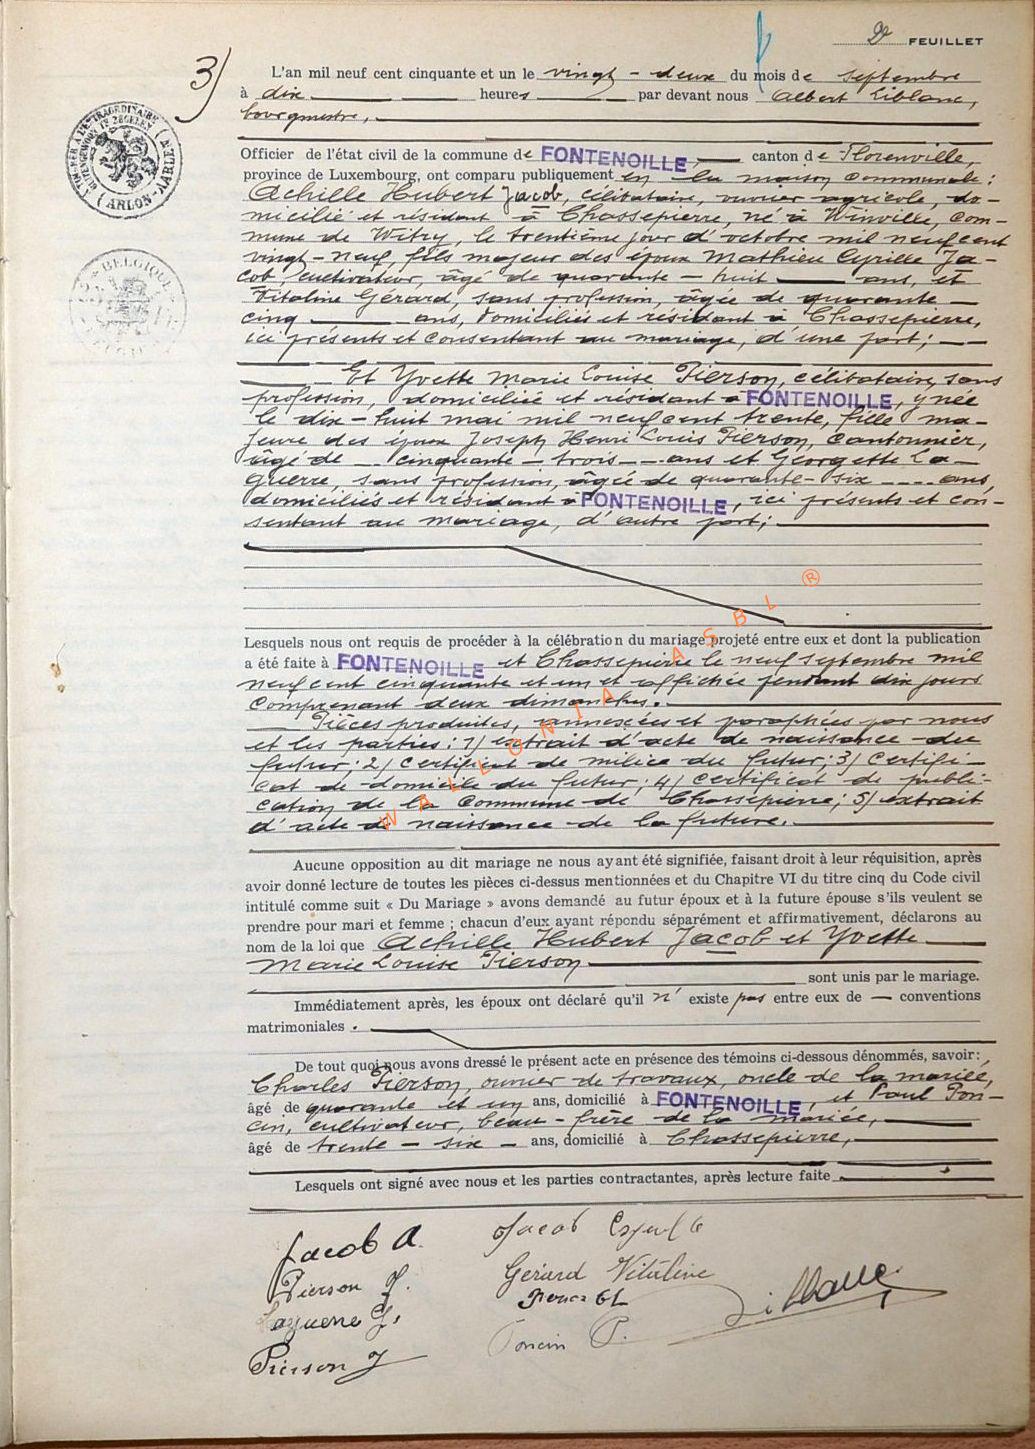 2e FEUILLET
3)
L'an mil neuf cent cinquante et un le vingt-deux du mois de septembre
à dix heures par devant nous Albert Liblanc,
bourgmestre,
Officier de l'état civil de la commune de FONTENOILLE canton de Florenville,
province de Luxembourg, ont comparu publiquement en la maison communale:
Achille Hubert Jacob, célibataire, ouvrier agricole, do-
micilié et résidant à Chassepierre, né à Winville, com-
mune de Witry, le trentième jour d'octobre mil neuf cent
vingt-neuf, fils majeur des époux Mathieu Cyrille Ja-
cob cultivateur, âgé de quarante-huit ans, et
Vitaline Gérard, sans profession, âgée de quarante-
cinq ans, domiciliés et résidant à Chassepierre,
ici présents et consentant au mariage, d'une part;
Et Yvette Marie Louise Pierson, célibataire, sans
profession, domiciliée et résidant à FONTENOILLE, y née
le dix-huit mai mil neuf cent trente, fille ma-
jeure des époux Joseph Henri Louis Pierson, cantonnier,
âgé de cinquante-trois ans et Georgette La-
guerre, sans profession, âgée de quarante-six ans,
domiciliés et résidant à FONTENOILLE, ici présents et con-
sentant au mariage, d'autre part;
Lesquels nous ont requis de procéder à la célébration du mariage projeté entre eux et dont la publication
a été faite à FONTENOILLE et Chassepierre le neuf septembre mil
neuf cent cinquante et un et affichée pendant dix jours
comprenant deux dimanches.
Pièces produites, annexées et paraphées par nous
et les parties: 1) extrait d'acte de naissance du
futur; 2) certificat de milice du futur; 3) certifi-
cat de domicile du futur; 4) certificat de publi-
cation de la commune de Chassepierre; 5) extrait
d'acte de naissance de la future.
WALLONIA ASBL ®
Aucune opposition au dit mariage ne nous ayant été signifiée, faisant droit à leur réquisition, après
avoir donné lecture de toutes les pièces ci-dessus mentionnées et du Chapitre VI du titre cinq du Code civil
intitulé comme suit « Du Mariage » avons demandé au futur époux et à la future épouse s'ils veulent se
prendre pour mari et femme ; chacun d'eux ayant répondu séparément et affirmativement, déclarons au
nom de la loi que Achille Hubert Jacob et Yvette
Marie Louise Pierson
sont unis par le mariage.
Immédiatement après, les époux ont déclaré qu'il n'existe pas entre eux de — conventions
matrimoniales.
De tout quoi nous avons dressé le présent acte en présence des témoins ci-dessous dénommés, savoir:
Charles Pierson, ouvrier de travaux, oncle de la mariée,
âgé de quarante et un ans, domicilié à FONTENOILLE, et Paul Pon-
cin, cultivateur, beau-frère de la mariée,
âgé de trente-six ans, domicilié à Chassepierre,
Lesquels ont signé avec nous et les parties contractantes, après lecture faite
Jacob A. Jacob
Pierson Y. Gérard Vitaline
Laguerre G.
Poncin P. Liblanc
Pierson J